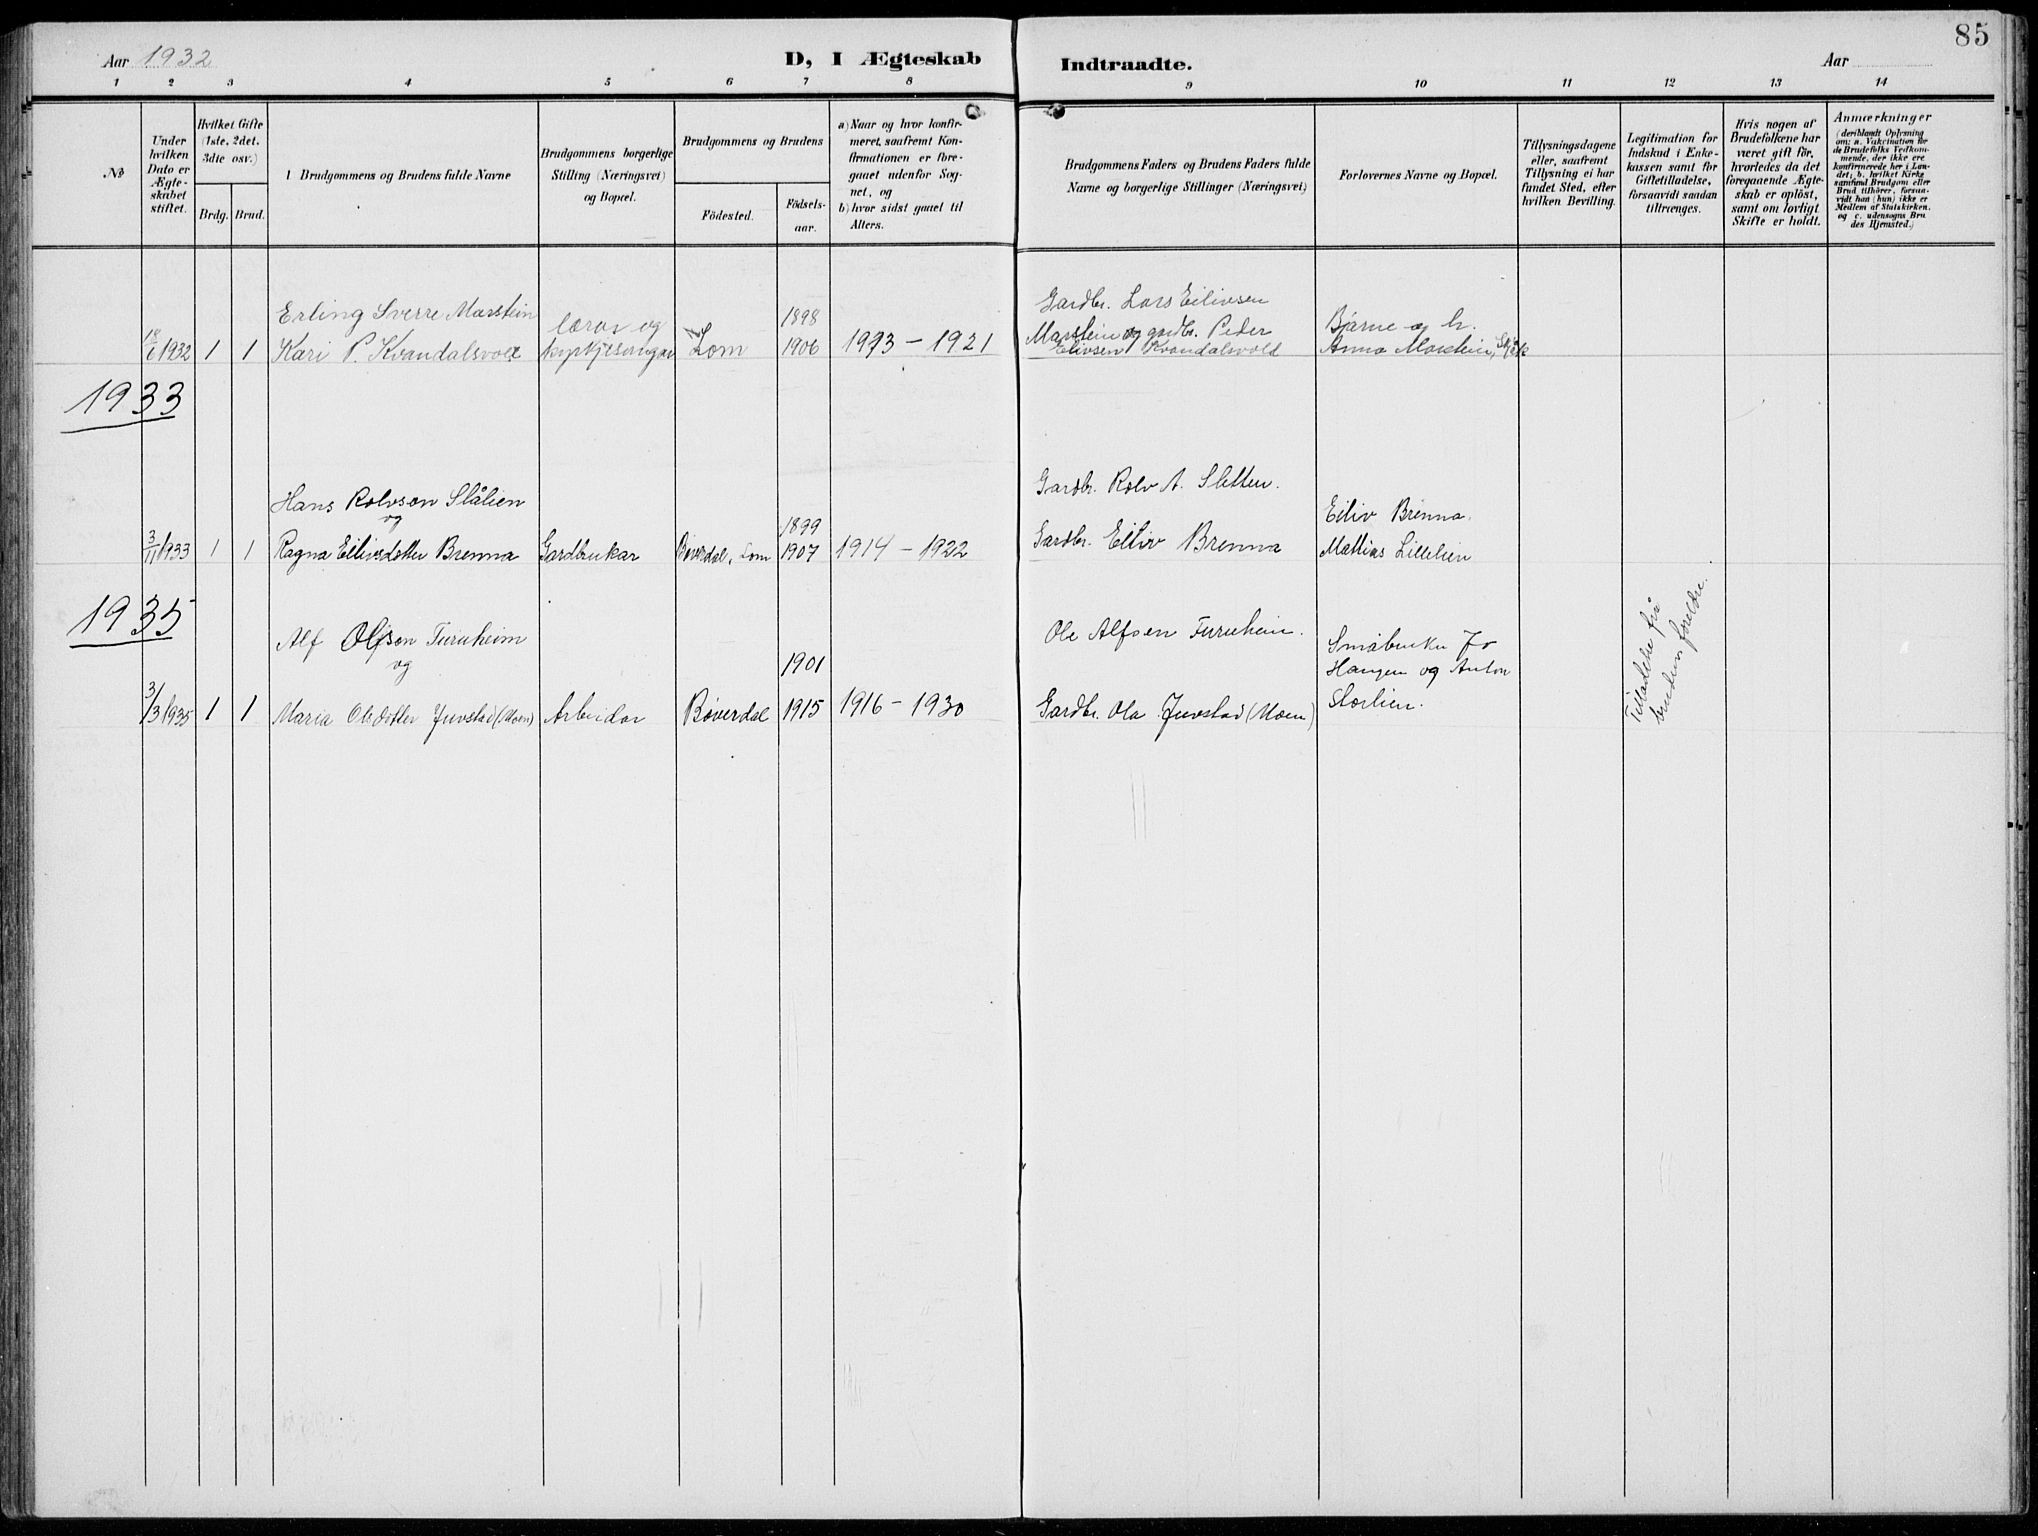 85
Aar 1932
D, I Ægteskab Indtraadte.
Aar
1 2 3 4 5 6 7 8 9 10 11 12 13 14
No
Under hvilken Dato er Ægte-skabet stiftet.
Hvilket Gifte (1ste, 2det. 3die osv.)
Brdg. Brud.
1 Brudgommens og Brudens fulde Navne
Brudgommens borgerlige Stilling (Næringsvei) og Bopæl.
Brudgommens og Brudens
Födested.
Födsels-aar.
a) Naar og hvor konfir-
meret, saafremt Kon-
firmationen er fore-
gaaet udenfor Sog-
net, og
b) hvor sidst gaaet til
Alters.
Brudgommens Faders og Brudens Faders fulde
Navne og borgerlige Stillinger (Næringsvei)
Forlovernes Navne og Bopæl.
Tillysningsdagene
eller, saafremt
Tillysning ei har
fundet Sted, efter
hvilken Bevilling.
Legitimation for
Indskud i Enke-
kassen samt for
Giftetilladelse,
forsaavidt saadan
tiltrænges.
Hvis nogen af
Brudefolkene har
været gift för,
hvorledes da det
foregaaende Ægte-
skab er oplöst,
samt om lovligt
Skifte er holdt.
Anmærkninger
(deriblandt Oplysning
om: a. Vakcination for
de Brudefolks Vedkom-
mende, der ikke ere
konfirmerede her i Lan-
det; b. hvilket Kirke-
samfund Brudgom eller
Brud tilhörer, forsaa-
vidt han (hun) ikke er
Medlem af Statskirken.
og c. udensogns Bru
des Hjemsted.)
Erling Sverre Marstein
Kari P. Kvandalsvoll
18/6 1932 1 1
lærar og
kyrkjesongar
Lom
1898
1906
1913 - 1921
Gardbr. Lars Eilivsen
Marstein og gardbr. Peder
Eilivsen Kvandalsvold
Bjarne og h.
Anna Marstein, Skjåk
1933
Hans Rolvson Slålien
og
3/11 1933 1 1 Ragna Eilivsdotter Brenna
Gardbrukar
Böverdal, Lom
1899
1907
1914 - 1922
Gardbr. Rolv A. Sletten.
Gardbr. Eiliv Brenna
Eiliv Brenna.
Mattias Lillelien
1935
Alf Olsson Furuheim
og
3/3 1935 1 1 Maria Olsdotter Juvstad (Moen)
Arbeidar
Böverdal
1901
1915
1916 - 1930
Ole Alfsen Furuheim.
Gardbr. Ola Juvstad (Moen)
Småbruker Jo
Haugen og Anton
Storlien.
Tilladelse frå
brudens foreldre.